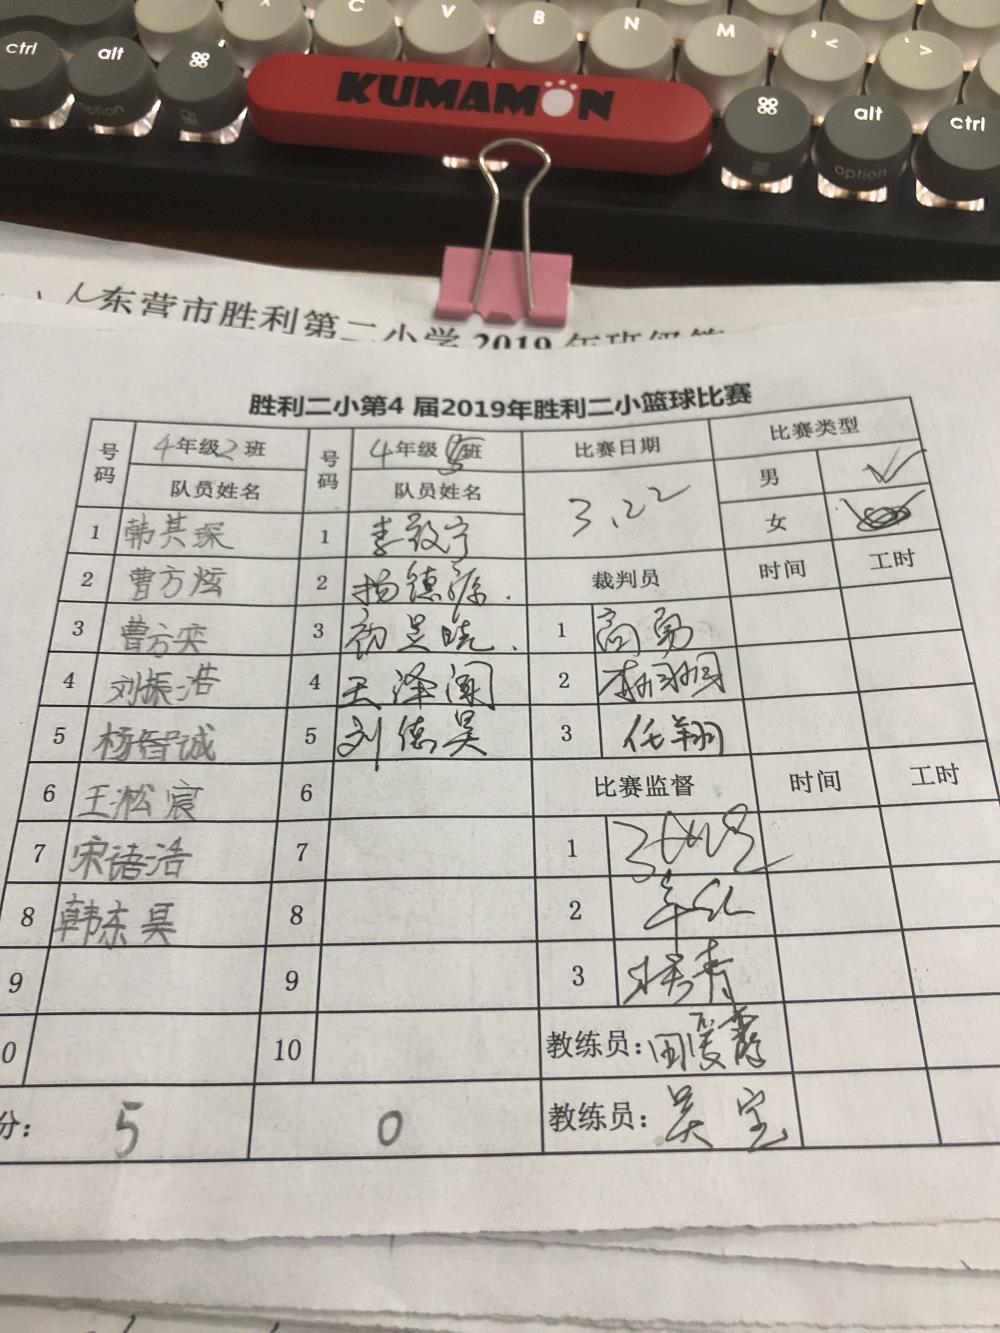 ^ C V B N M , < . >
ctrl alt option ⌘ KUMAMON ⌘ alt option ctrl
东营市胜利第二小学2019年班级篮
胜利二小第4 届2019年胜利二小篮球比赛
号码 4年级2班 号码 4年级 班 比赛日期 比赛类型
队员姓名 队员姓名 3.22 男 ✓
女
1 韩其琛 1 李致宁
2 曹方炫 2 杨德源. 裁判员 时间 工时
3 曹方奕 3 1 高勇
4 刘振浩 4 王泽阔 2
5 杨智诚 5 刘德昊 3 任翔
6 王淞宸 6 比赛监督 时间 工时
7 宋语浩 7 1
8 韩东昊 8 2
9 9 3
0 10 教练员:
分: 5 0 教练员: 吴宝